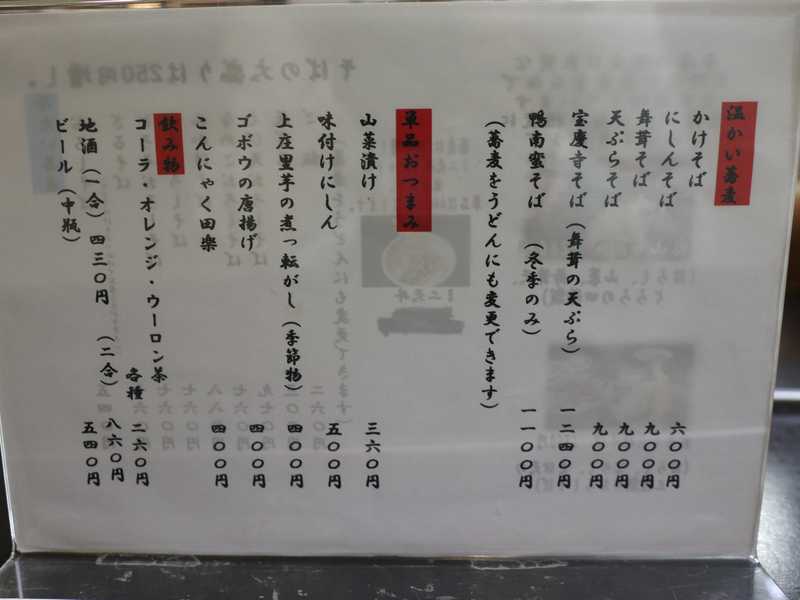 温かい蕎麦
かけそば 六〇〇円
にしんそば 九〇〇円
舞茸そば 九〇〇円
天ぷらそば 九〇〇円
宝慶寺そば（舞茸の天ぷら） 一二四〇円
鴨南蛮そば （冬季のみ） 一一〇〇円
（蕎麦をうどんにも変更できます）
単品おつまみ
山菜漬け 三六〇円
味付けにしん 五〇〇円
上庄里芋の煮っ転がし（季節物） 四〇〇円
ゴボウの唐揚げ 四〇〇円
こんにゃく田楽 四〇〇円
飲み物
コーラ・オレンジ・ウーロン茶 各種 二六〇円
地酒（一合）四三〇円 （二合） 八六〇円
ビール（中瓶） 五四〇円
そばの大盛りは250円増し。